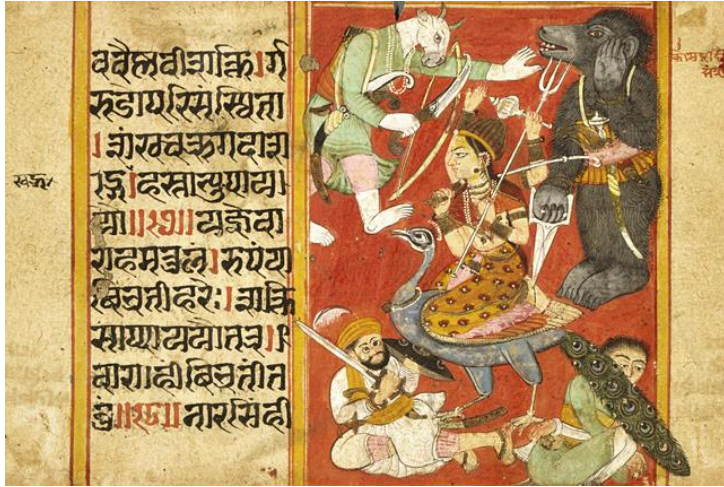 ववैष्णवीशक्ति।र्ग
रुडोपरिसंस्थिता
।शंखचक्रगदाशा
र्ङ्ग।हस्ताभ्युपाय
खड्ग
यौ॥१७॥यज्ञवा
राहमतुलं।रूपंया
बिभ्रतीहरेः।शक्ति
साप्याययौतत्र॥
वाराहीबिभ्रतीत
नुं॥१८॥नारसिंही